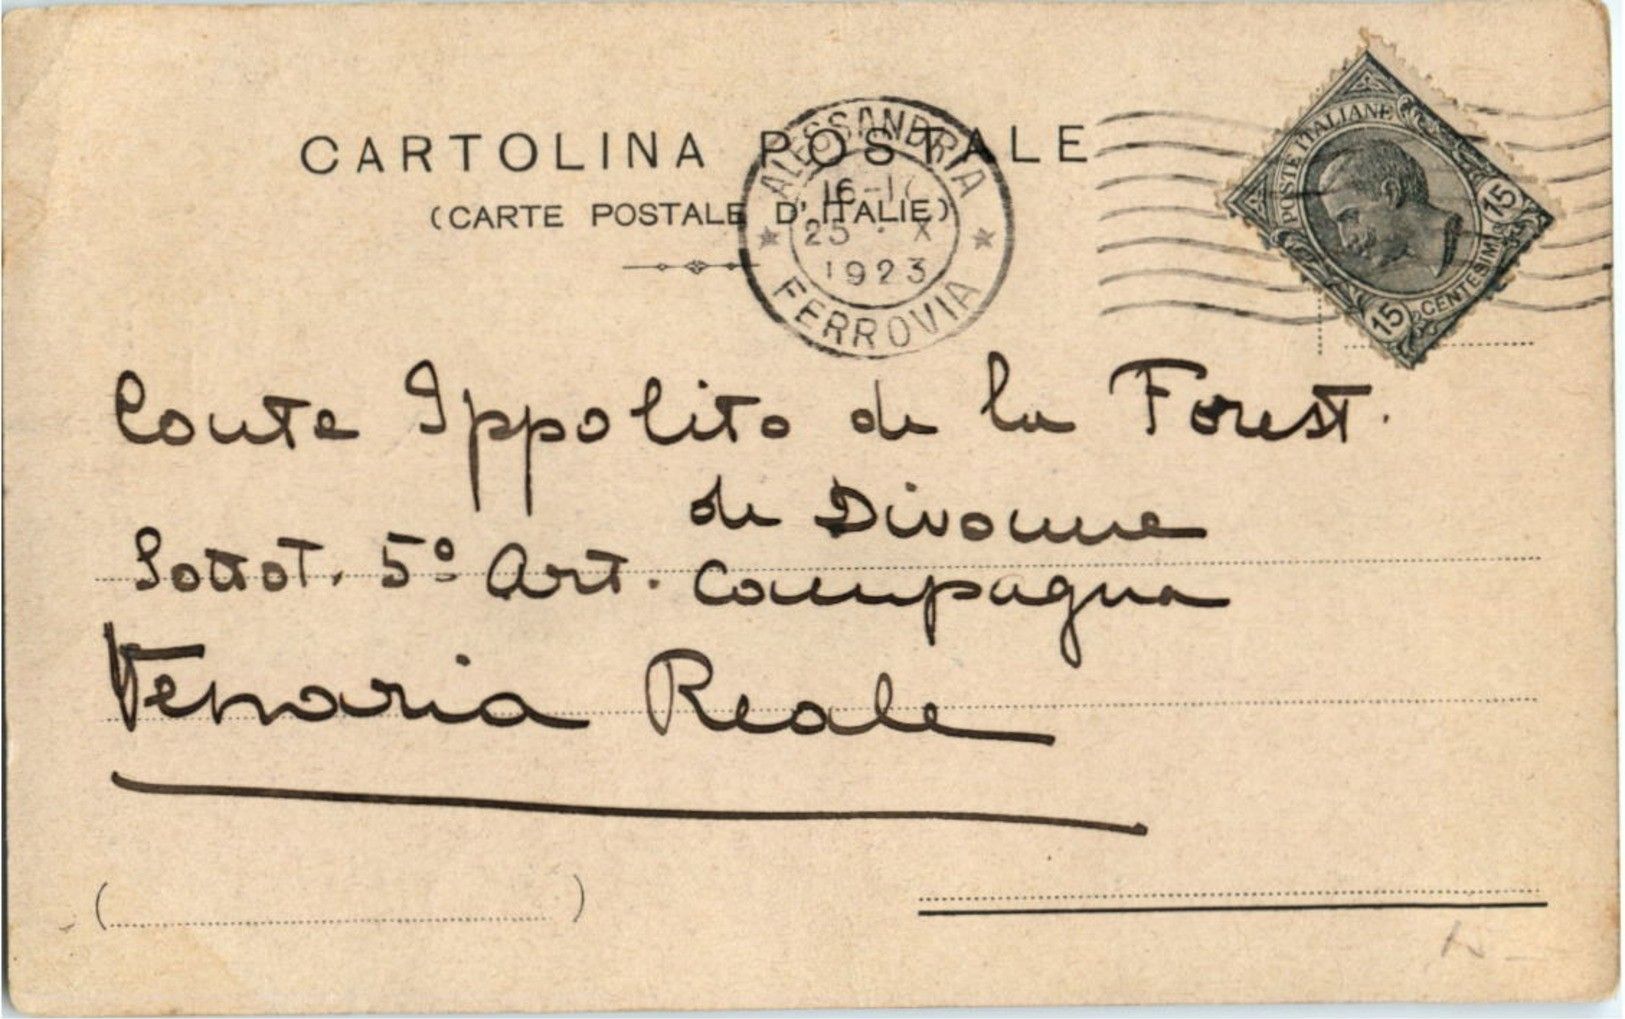 CARTOLINA POSTALE
(CARTE POSTALE D'ITALIE)
ALESSANDRIA
16-17
25 · X
1923
FERROVIA
POSTE ITALIANE
15
15
CENTESIMI
Conte Ippolito de la Forest.
de Divonne
Sottot. 5º Art. Campagna
Venaria Reale